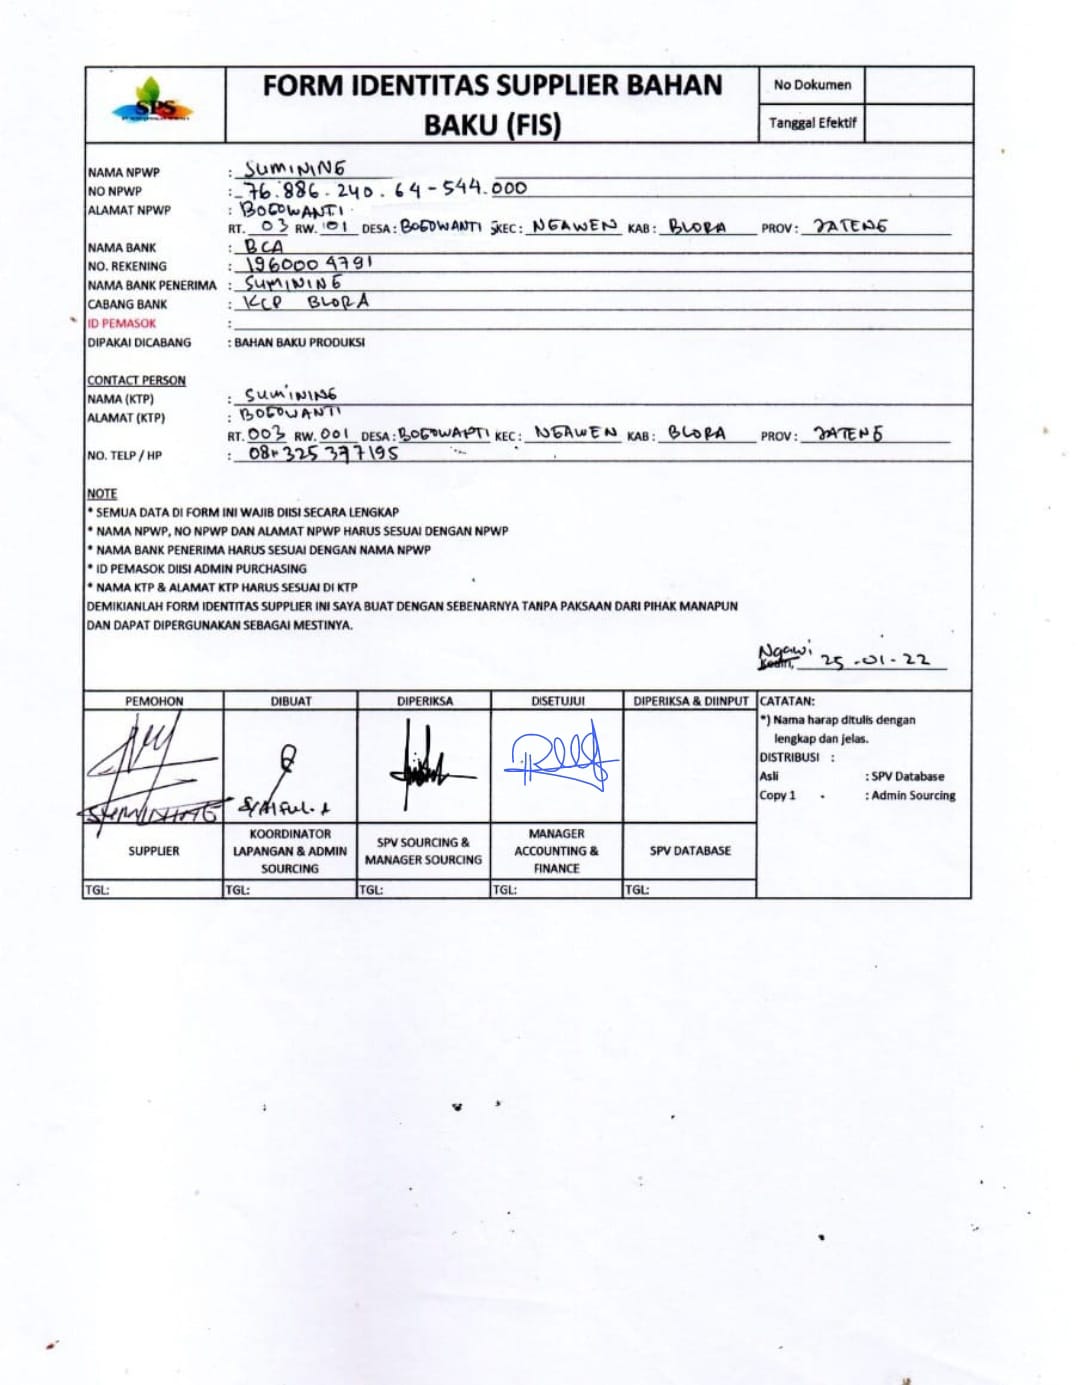 SPS
FORM IDENTITAS SUPPLIER BAHAN
BAKU (FIS)
No Dokumen
Tanggal Efektif
NAMA NPWP : SUMINING
NO NPWP : 76.886.240.64-544.000
ALAMAT NPWP : BOGOWANTI
RT. 03 RW. 01 DESA : BOGOWANTI KEC : NGAWEN KAB : BLORA PROV : JATENG
NAMA BANK : BCA
NO. REKENING : 1960004791
NAMA BANK PENERIMA : SUMINING
CABANG BANK : KCP BLORA
ID PEMASOK :
DIPAKAI DICABANG : BAHAN BAKU PRODUKSI
CONTACT PERSON
NAMA (KTP) : SUMINING
ALAMAT (KTP) : BOGOWANTI
RT. 003 RW. 001 DESA : BOGOWANTI KEC : NGAWEN KAB : BLORA PROV : JATENG
NO. TELP / HP : 325 377195
NOTE
* SEMUA DATA DI FORM INI WAJIB DIISI SECARA LENGKAP
* NAMA NPWP, NO NPWP DAN ALAMAT NPWP HARUS SESUAI DENGAN NPWP
* NAMA BANK PENERIMA HARUS SESUAI DENGAN NAMA NPWP
* ID PEMASOK DIISI ADMIN PURCHASING
* NAMA KTP & ALAMAT KTP HARUS SESUAI DI KTP
DEMIKIANLAH FORM IDENTITAS SUPPLIER INI SAYA BUAT DENGAN SEBENARNYA TANPA PAKSAAN DARI PIHAK MANAPUN
DAN DAPAT DIPERGUNAKAN SEBAGAI MESTINYA.
Ngawi
Kediri, 25-01-22
PEMOHON DIBUAT DIPERIKSA DISETUJUI DIPERIKSA & DIINPUT CATATAN:
*) Nama harap ditulis dengan
lengkap dan jelas.
DISTRIBUSI :
Asli : SPV Database
Copy 1 : Admin Sourcing
SUMINING
SUPPLIER
KOORDINATOR
LAPANGAN & ADMIN
SOURCING
SPV SOURCING &
MANAGER SOURCING
MANAGER
ACCOUNTING &
FINANCE
SPV DATABASE
TGL: TGL: TGL: TGL: TGL: